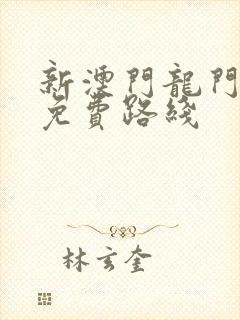 新澐門龍門
免費路綫
林玄奎